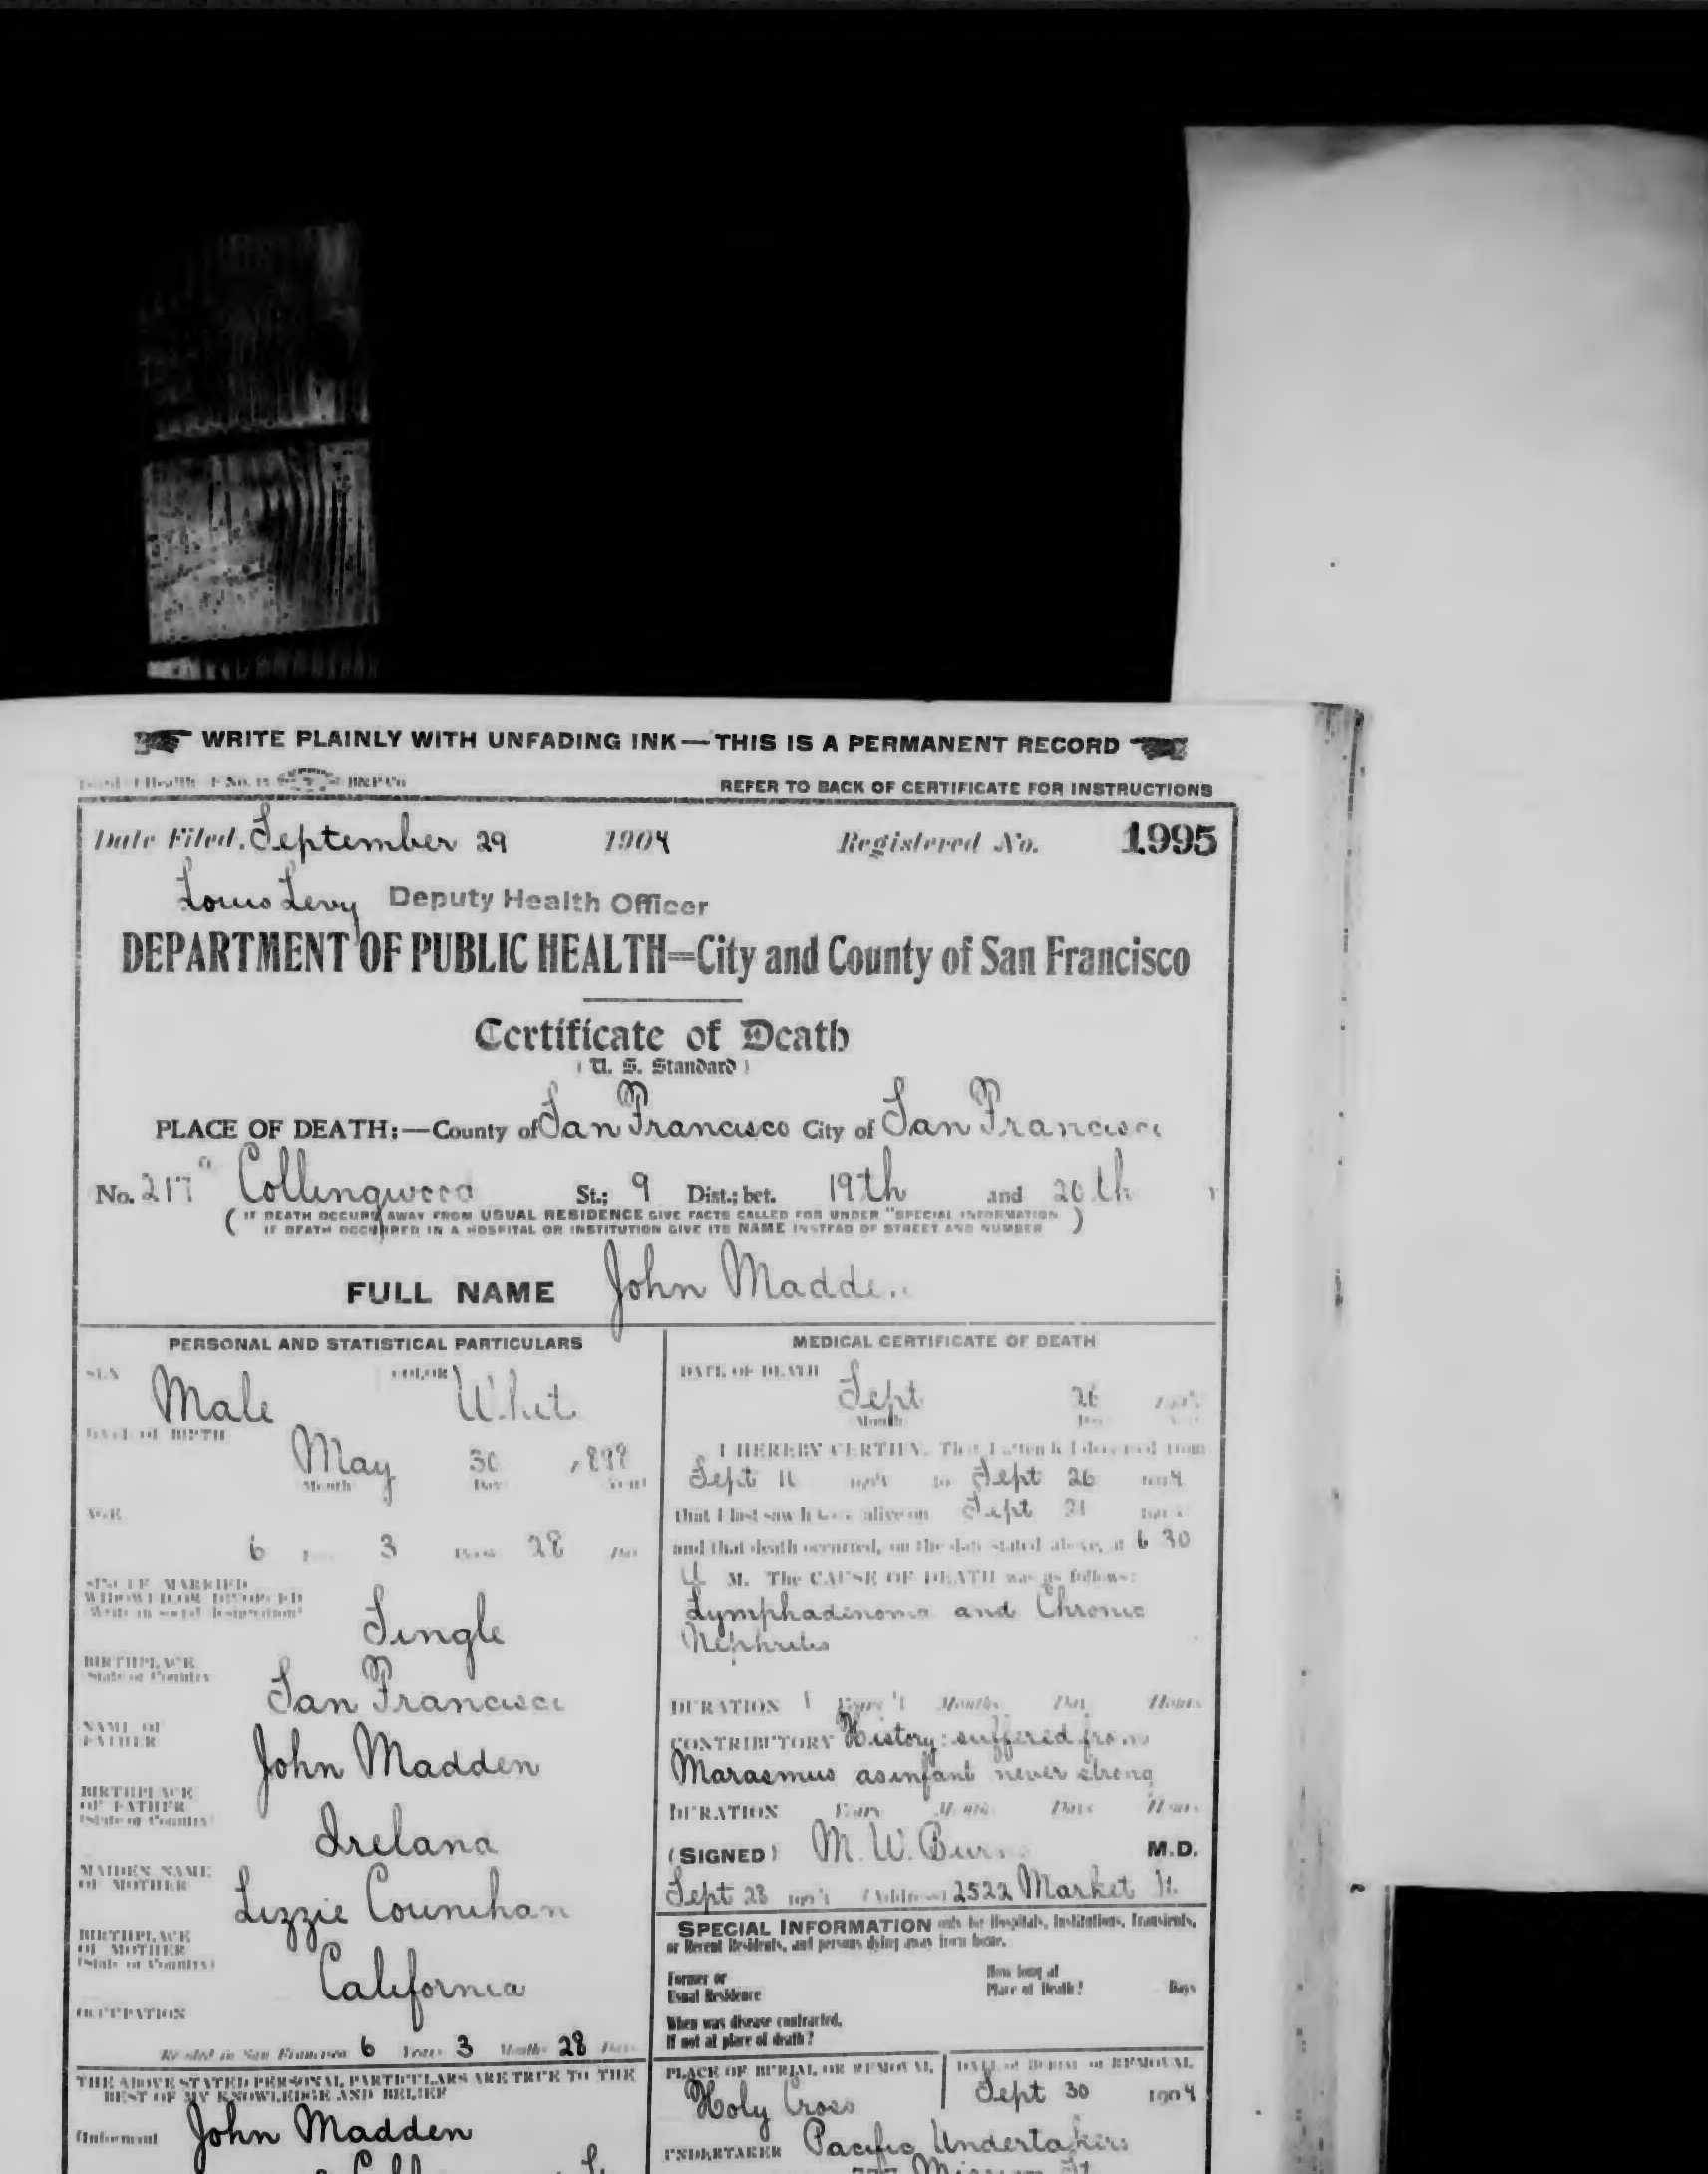 WRITE PLAINLY WITH UNFADING INK—THIS IS A PERMANENT RECORD
REFER TO BACK OF CERTIFICATE FOR INSTRUCTIONS
Date Filed, September 29 1904 Registered No. 1995
Louis Levy Deputy Health Officer
DEPARTMENT OF PUBLIC HEALTH=City and County of San Francisco
Certificate of Death
(U. S. Standard)
PLACE OF DEATH:—County of San Francisco City of San Francisco
No. 217 Collingwood St.; 9 Dist.; bet. 19th and 20th
(IF DEATH OCCURS AWAY FROM USUAL RESIDENCE GIVE FACTS CALLED FOR UNDER "SPECIAL INFORMATION
IF DEATH OCCURRED IN A HOSPITAL OR INSTITUTION GIVE ITS NAME INSTEAD OF STREET AND NUMBER)
FULL NAME John Madden
PERSONAL AND STATISTICAL PARTICULARS
SEX Male COLOR White
DATE OF BIRTH
May 30
Month Day Year
AGE
6 3 28
SINGLE MARRIED
WIDOWED OR DIVORCED
Single
BIRTHPLACE
State or Country
San Francisco
NAME OF
FATHER
John Madden
BIRTHPLACE
OF FATHER
(State or Country)
Ireland
MAIDEN NAME
OF MOTHER
Lizzie Counihan
BIRTHPLACE
OF MOTHER
(State or Country)
California
OCCUPATION
Resided in San Francisco 6 Years 3 Months 28 Days
THE ABOVE STATED PERSONAL PARTICULARS ARE TRUE TO THE
BEST OF MY KNOWLEDGE AND BELIEF
(Informant John Madden
MEDICAL CERTIFICATE OF DEATH
DATE OF DEATH
Sept 26
Month Day
I HEREBY CERTIFY, That I attended deceased from
Sept to Sept 26 1904
that I last saw h alive on Sept
and that death occurred, on the date stated above, at 6 30
M. The CAUSE OF DEATH was as follows:
Lymphadenoma and Chronic
Nephritis
DURATION Years Months Days Hours
CONTRIBUTORY History: suffered from
Marasmus as infant never strong
DURATION Years Months Days Hours
(SIGNED) M. W. M.D.
Sept 28 1904 (Address) 2522 Market St.
SPECIAL INFORMATION only for Hospitals, Institutions, Transients,
or Recent Residents, and persons dying away from home.
Former or
Usual Residence
How long at
Place of Death? Days
When was disease contracted,
If not at place of death?
PLACE OF BURIAL OR REMOVAL
Holy Cross
DATE of BURIAL or REMOVAL
Sept 30 1904
UNDERTAKER Pacific Undertakers
Mission St